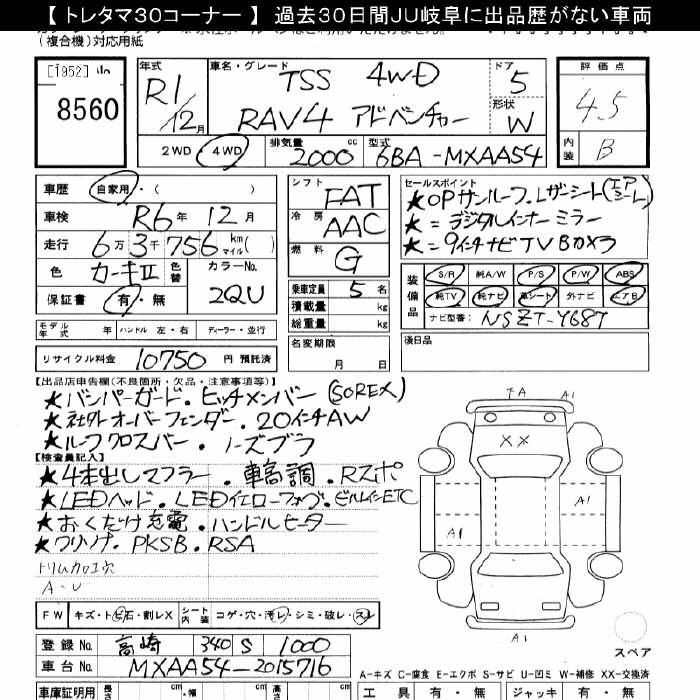 【トレタマ30コーナー】 過去30日間JU岐阜に出品歴がない車両
(複合機)対応用紙
[1952]
8560
年式
R1/12月
車名・グレード
TSS 4WD
RAV4 アドベンチャー
ドア
5
形状
W
評価点
4.5
内装
B
2WD 4WD
排気量
2000 cc
型式
6BA-MXAA54
車歴 自家用・( )
車検 R6年12月
走行 6万3千756 km マイル( )
色 ガーキⅡ
色替
カラーNo.
2QU
保証書 有・無
シフト
FAT
冷房
AAC
燃料
G
乗車定員 5名
積載量 kg
総重量 kg
セールスポイント
★OPサンルーフ.Lザーシート(エアシーム)
★=デジタルインナーミラー
★=9インチナビTVBカメラ
装備品
S/R 純A/W P/S P/W ABS
純TV 純ナビ 革シート 外ナビ エアB
ナビ型番: NSZT-Y68T
モデル年式 年 ハンドル 左・右 ディーラー・並行
リサイクル料金 10750 円 預託済
名変期限
月 日
後日品
【出品店申告欄(不良箇所・欠品・注意事項等)】
★バンパーガード.ヒッチメンバー(SOREX)
★社外オーバーフェンダー.20インチAW
★ルーフクロスバー.ノーズブラ
【検査員記入】
★4本出しマフラー.車高調.Rスポ
★LEDヘッド.LEDイエローフォグ.ビルトインETC
★おくだけ充電.ハンドルヒーター
★フリップ.PKSB.RSA
トリムカロエ穴
A-U
FW キズ・トビ石・割レX
シート内装 コゲ・穴・汚レ・シミ・破レ・スレ
登録No. 高崎 340 S 1000
車台No. MXAA54-2015716
A A1
XX
A1
A1
A1
スペア
A-キズ C-腐食 E-エクボ S-サビ U-凹ミ W-補修 XX-交換済
車庫証明用 長 cm 幅 cm 高 cm
工具 有・無 ジャッキ 有・無